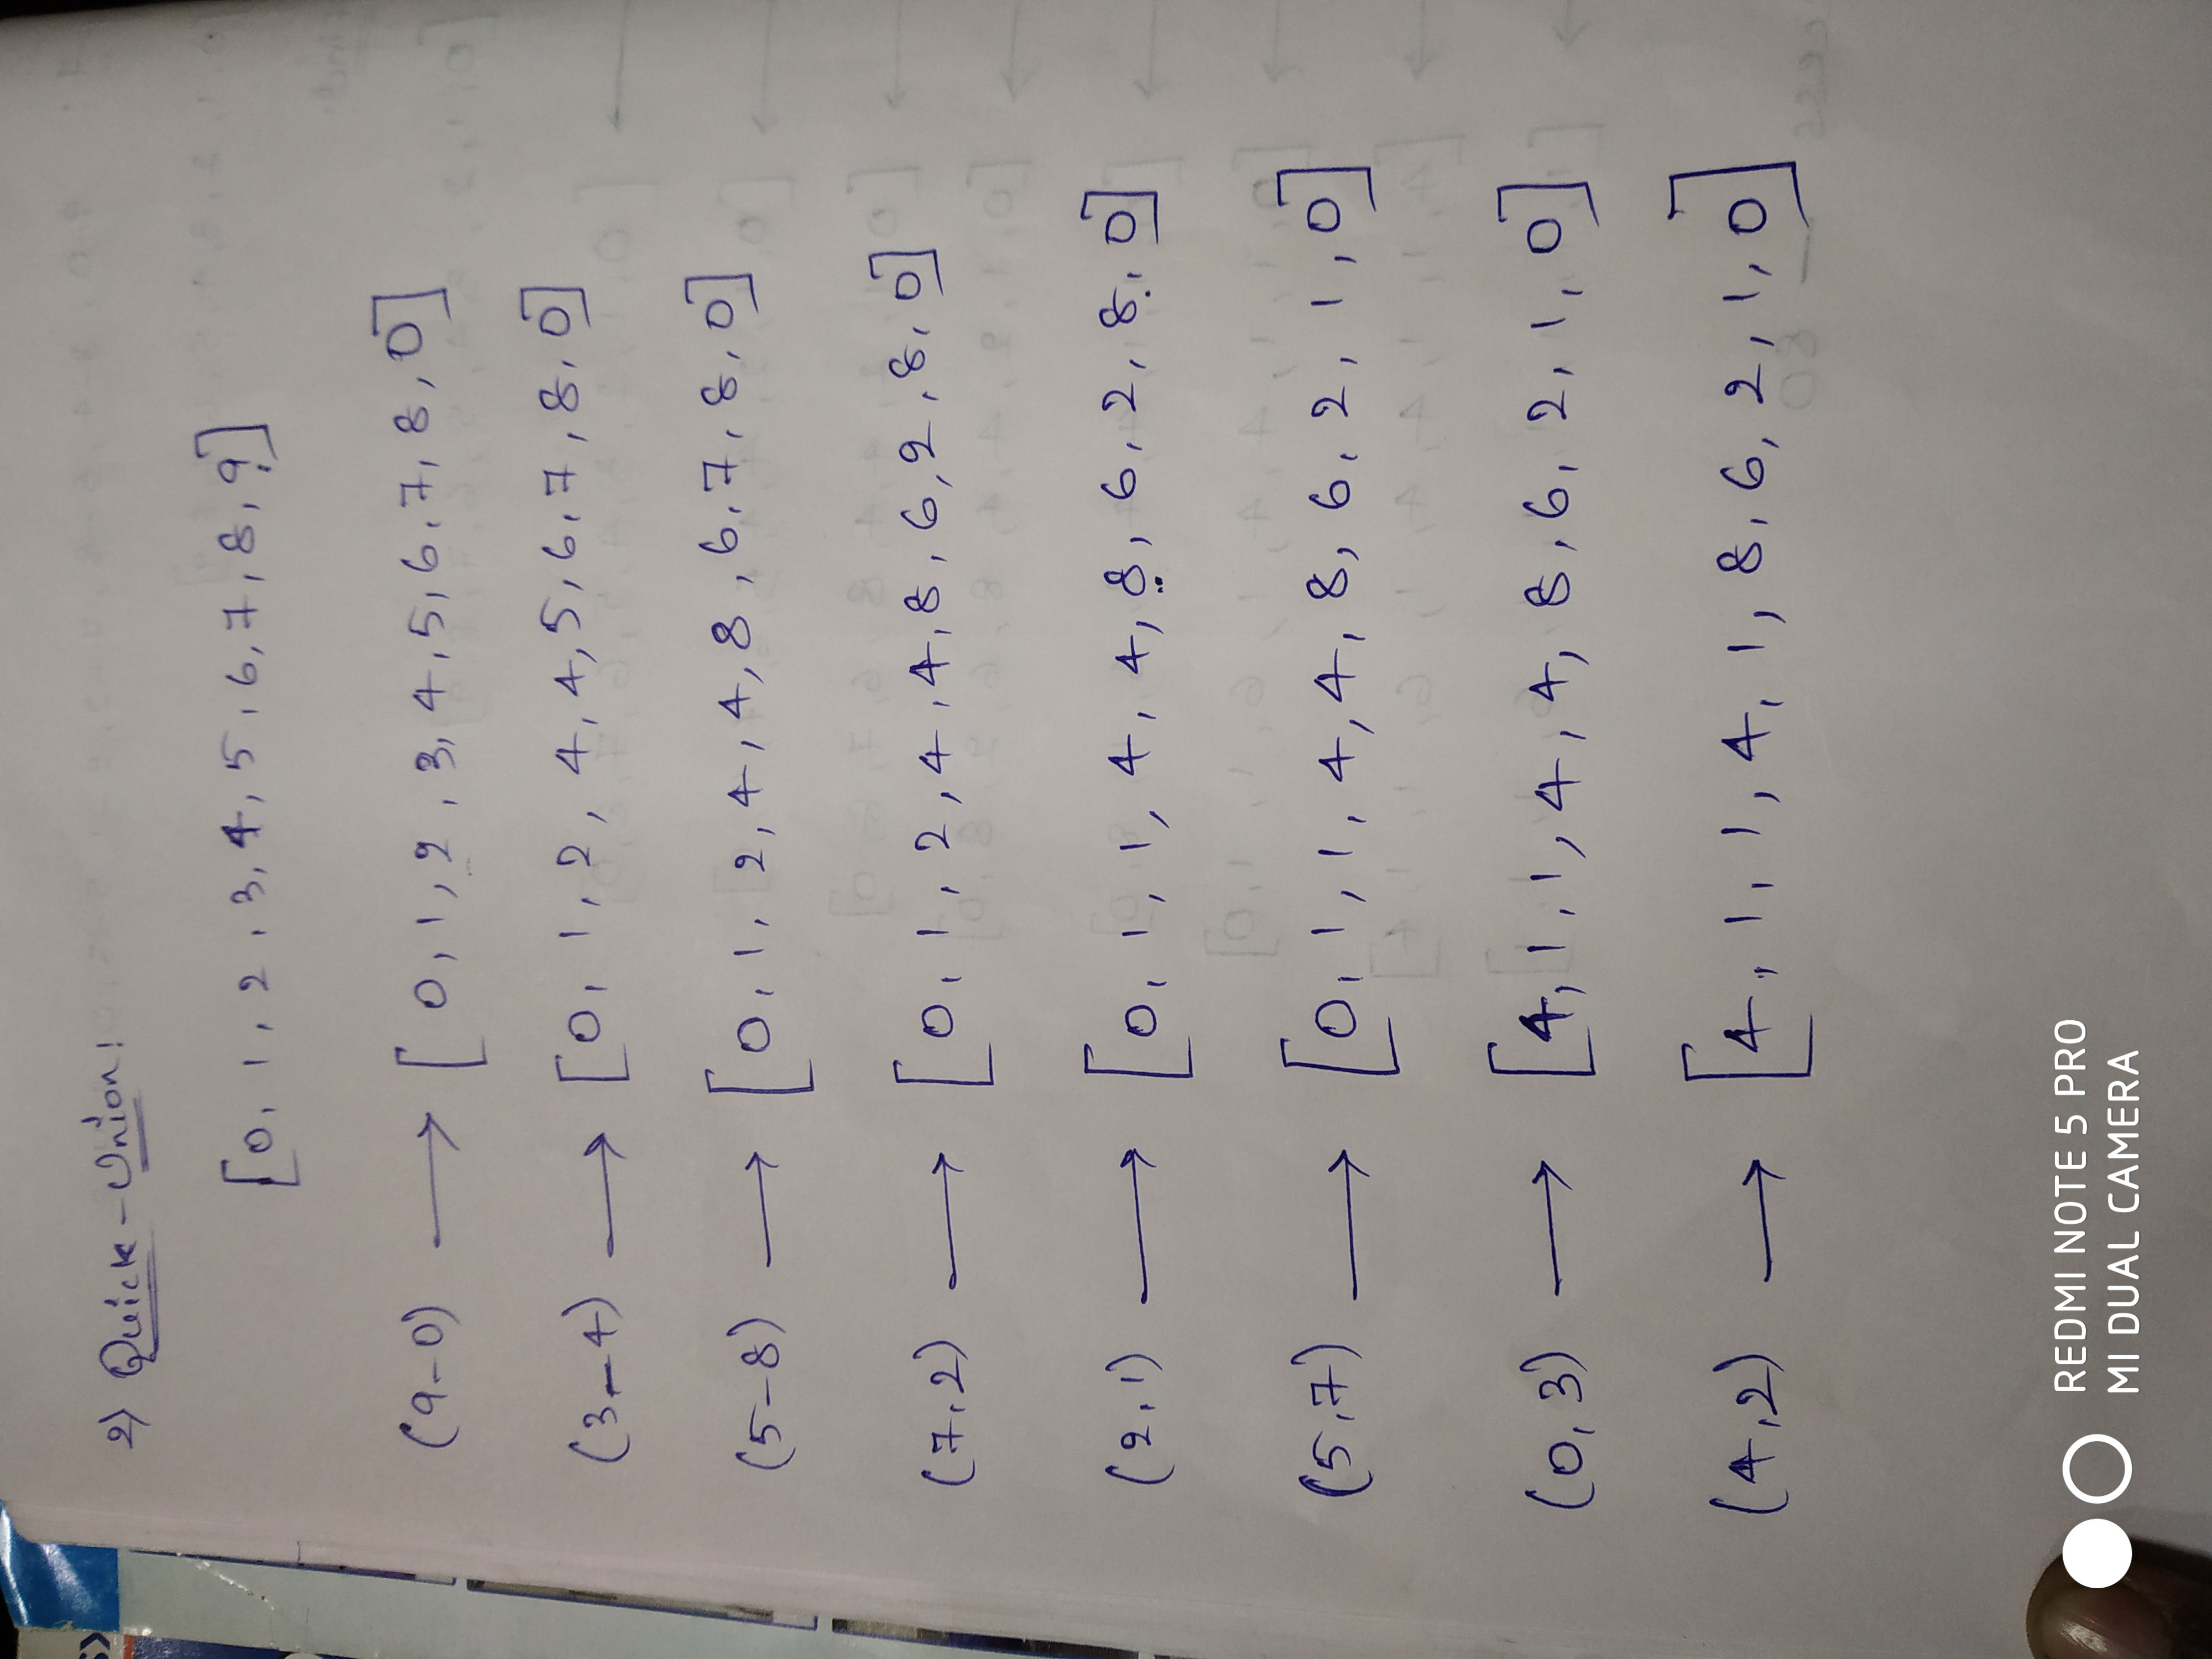 2) Quick-Union!
[0, 1, 2, 3, 4, 5, 6, 7, 8, 9]
(9-0) → [0, 1, 2, 3, 4, 5, 6, 7, 8, 0]
(3-4) → [0, 1, 2, 4, 4, 5, 6, 7, 8, 0]
(5-8) → [0, 1, 2, 4, 4, 8, 6, 7, 8, 0]
(7,2) → [0, 1, 2, 4, 4, 8, 6, 2, 8, 0]
(2,1) → [0, 1, 1, 4, 4, 8, 6, 2, 8, 0]
(5,7) → [0, 1, 1, 4, 4, 8, 6, 2, 1, 0]
(0,3) → [4, 1, 1, 4, 4, 8, 6, 2, 1, 0]
(4,2) → [4, 1, 1, 4, 1, 8, 6, 2, 1, 0]
REDMI NOTE 5 PRO
MI DUAL CAMERA